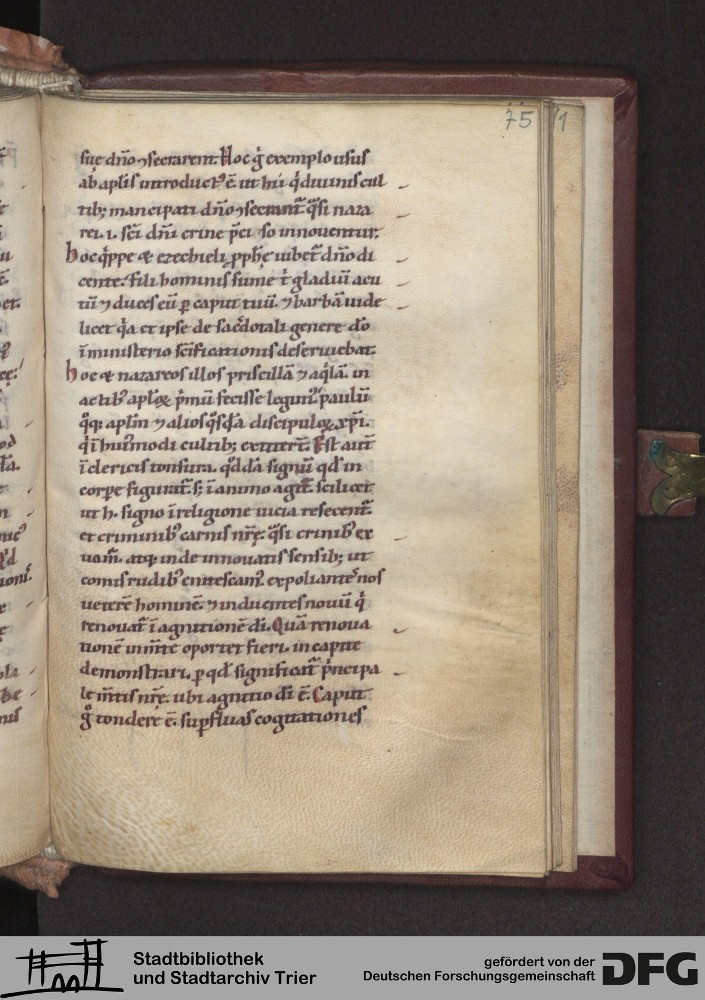 75
71
suę dño ⁊secrarent. Hoc g̃ exemplo usus
ab aplis introduct᷒ ẽ. ut hii q̇ diuinis cul
tib; mancipati dño ⁊secrant̃ q̇si naza
rei. i. sc̃i dñi crine p̃ci so innouentur.
hoc q̇ppe & ezechieli ꝓphę iubet̃ dño di
cente. Fili hominis sume t̃ gladiũ acu
tũ ⁊ duces eũ ꝑ caput tuũ ⁊ barbã uide
licet q̇a et ipse de sac̃dotali genere dõ
ĩ ministerio sc̃ificationis deseruiebat.
hoc & nazareos illos priscillã ⁊ aq̇lã. in
actib᷒ aplꝝ p̃mũ fecisse legunt̃ paulũ
q̊q; aplm ⁊ alios q̊sdã discipulꝝ xp̃i.
q̇ ĩ hui᷒modi cultib; extiter̃. Est aut̃
ĩ clericis tonsura. q̊ddã signũ qd̃ in
corpe figurat̃ s; ĩ animo agit̃. scilicet
ut h. signo ĩ religione uicia resecent̃
et criminib᷒ carnis nr̃ę. q̇si crinib᷒ ex
uam᷒. atq; inde innouatis sensib; ut
comis rudib᷒ enitescam᷒. expoliantes nos
ueterẽ hominẽ. ⁊ induentes nouũ q̇
renouat̃ ĩ agnitionẽ di. Quã renoua
tionẽ ĩ mẽte oportet fieri. in capite
demonstrari. ꝑ qd̃ significat̃ p̃ncipa
le m̃tis nr̃ę. ubi agnitio di ẽ. Caput
g̊ tondere ẽ. suꝑfluas cogitationes
Stadtbibliothek
und Stadtarchiv Trier
gefördert von der
Deutschen Forschungsgemeinschaft
DFG